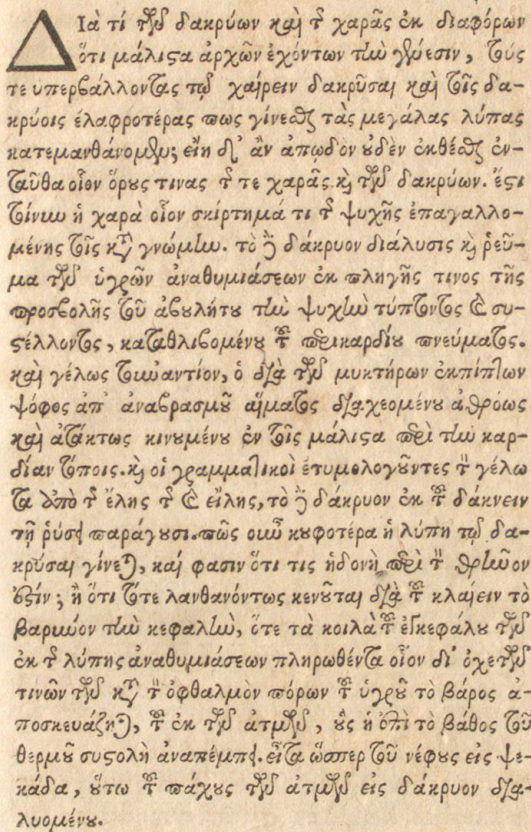 Διὰ τί τῶν δακρύων καὶ τ῀ χαρᾶς ἐκ διαφόρων
ὅτι μάλιϛα ἀρχῶν ἐχόντων τὴν γένεσιν, τούς
τε υπερβάλλοντας τῷ χαίρειν δακρῦσαι καὶ τοῖς δα-
κρύοις ἐλαφροτέρας πως γίνεσθαι τὰς μεγάλας λύπας
κατεμανθάνομεν; εἴη δ' ἂν ἀπωδὸν οὐδὲν ἐκθέσθαι ἐν-
ταῦθα οἷον ὅρους τινας τῆς τε χαρᾶς καὶ τῶν δακρύων. ἔϛι
τοίνυν ἡ χαρὰ οἷον σκίρτημά τι τῆς ψυχῆς ἐπαγαλλο-
μένης τοῖς κατὰ γνώμην. τὸ δὲ δάκρυον διάλυσις καὶ ῥεῦ-
μα τῶν ὑγρῶν ἀναθυμιάσεων ἐκ πληγῆς τινος τῆς
προσβολῆς τοῦ ἀβουλήτου τὴν ψυχὴν τύπτοντος καὶ συ-
ϛέλλοντος, καταθλιβομένου τοῦ περικαρδίου πνεύματος.
καὶ γέλως τοὐναντίον, ὁ διὰ τῶν μυκτήρων ἐκπίπτων
ψόφος ἀπ' ἀναβρασμοῦ αἵματος διαχεομένου ἀθρόως
καὶ ἀτάκτως κινουμένου ἐν τοῖς μάλιϛα περὶ τὴν καρ-
δίαν τόποις. καὶ οἱ γραμματικοὶ ἐτυμολογοῦντες τὸν γέλω
τα ἀπὸ τῆς ἕλης τῆς καὶ εἵλης, τὸ δὲ δάκρυον ἐκ τοῦ δάκνειν
τῇ ῥύσει παράγουσι. πῶς οὖν κουφοτέρα ἡ λύπη τῷ δα-
κρῦσαι γίνεται, καί φασιν ὅτι τις ἡδονὴ περὶ τὸν θρῆνον
ἐϛίν; ἢ ὅτι τότε λανθανόντως κενοῦται διὰ τοῦ κλαίειν τὸ
βαρῦνον τὴν κεφαλὴν, ὅτε τὰ κοιλὰ τοῦ ἐγκεφάλου τῶν
ἐκ τῆς λύπης ἀναθυμιάσεων πληρωθέντα οἷον δι' ὀχετῶν
τινῶν τῶν κατὰ τὸν ὀφθαλμὸν πόρων τοῦ ὑγροῦ τὸ βάρος ἀ-
ποσκευάζηται, τοῦ ἐκ τῶν ἀτμῶν, οὓς ἡ ἐπὶ τὸ βάθος τοῦ
θερμοῦ συϛολὴ ἀναπέμπει. εἶτα ὥσπερ τοῦ νέφους εἰς ψε-
κάδα, οὕτω τοῦ πάχους τῶν ἀτμῶν εἰς δάκρυον δια-
λυομένου.